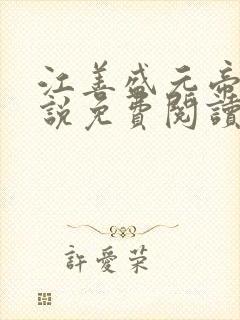 江善盛元帝
說免費閱讀
許愛荣